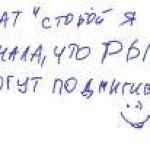 АТ "СТОБОЙ Я
НАЛА, ЧТО РЫ
ОГУТ ПОДМИГИВ